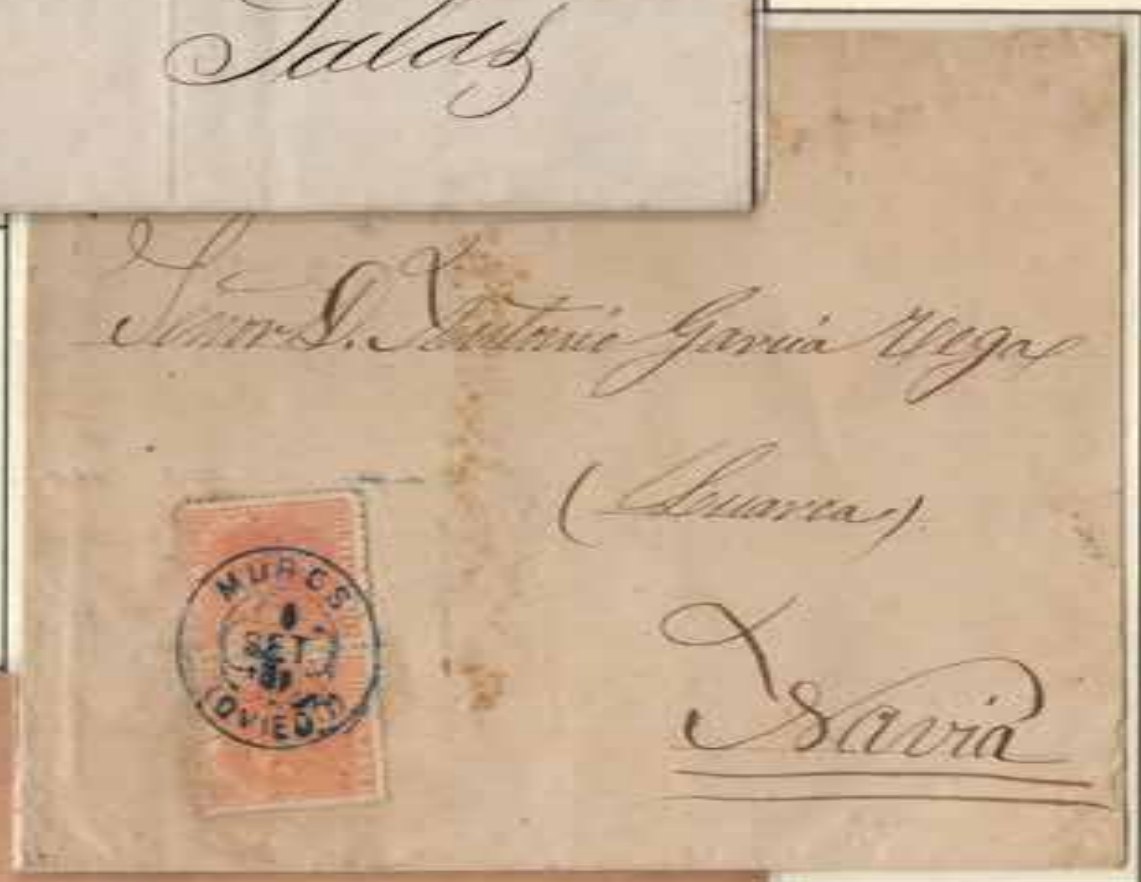 Salas
Señor D. Antonio Garcia Vega
(Luarca)
Navia
MUROS
SET
(OVIEDO)